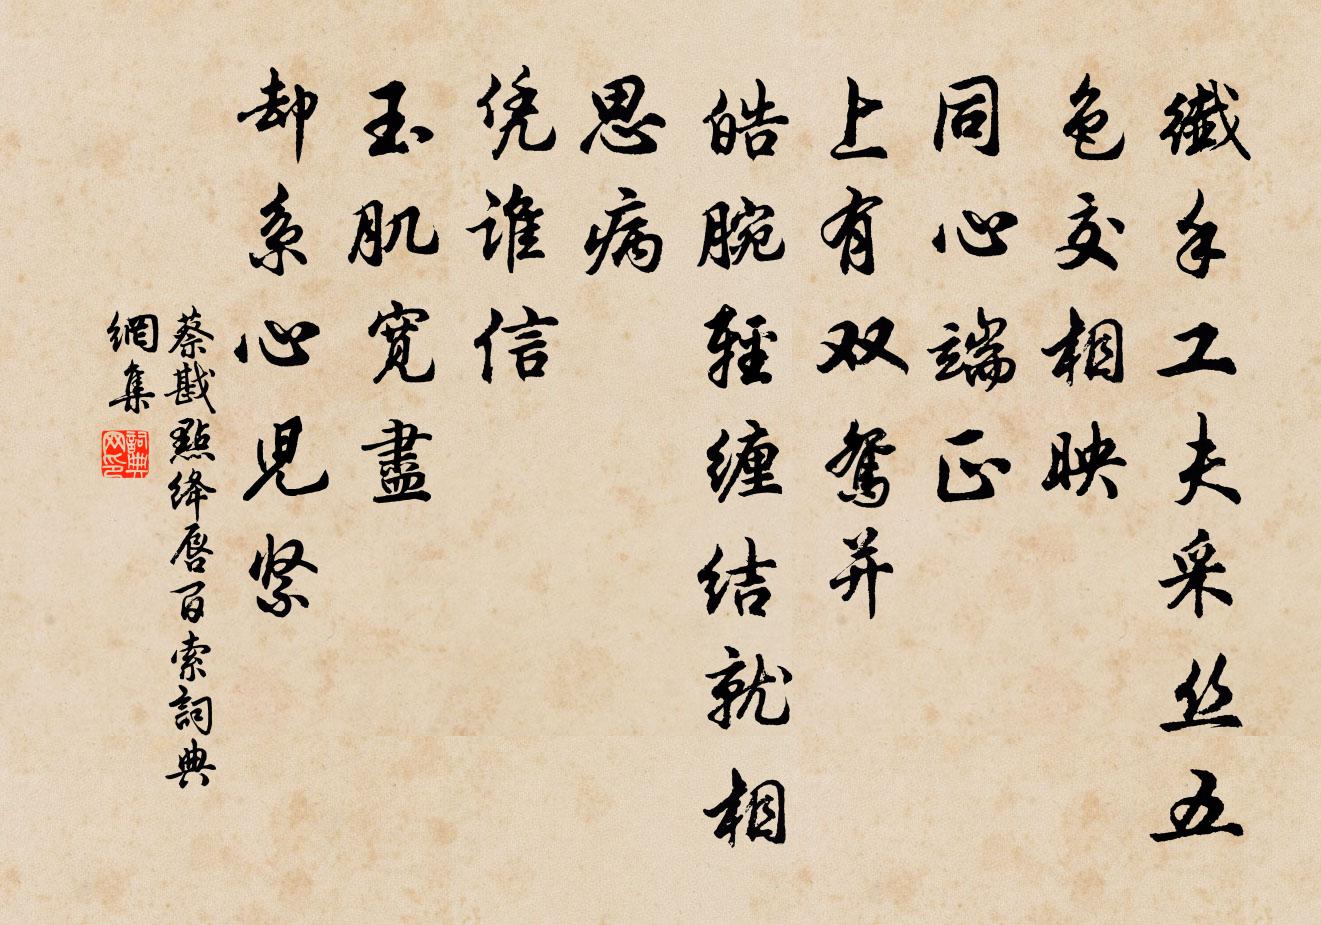 纖手工夫采丝五
色交相映
同心端正
上有双鸳并
皓腕輕缠结就相
思病
凭谁信
玉肌寛盡
却系心児紧
蔡戡點绛唇百索詞典
網集
詞典
网印